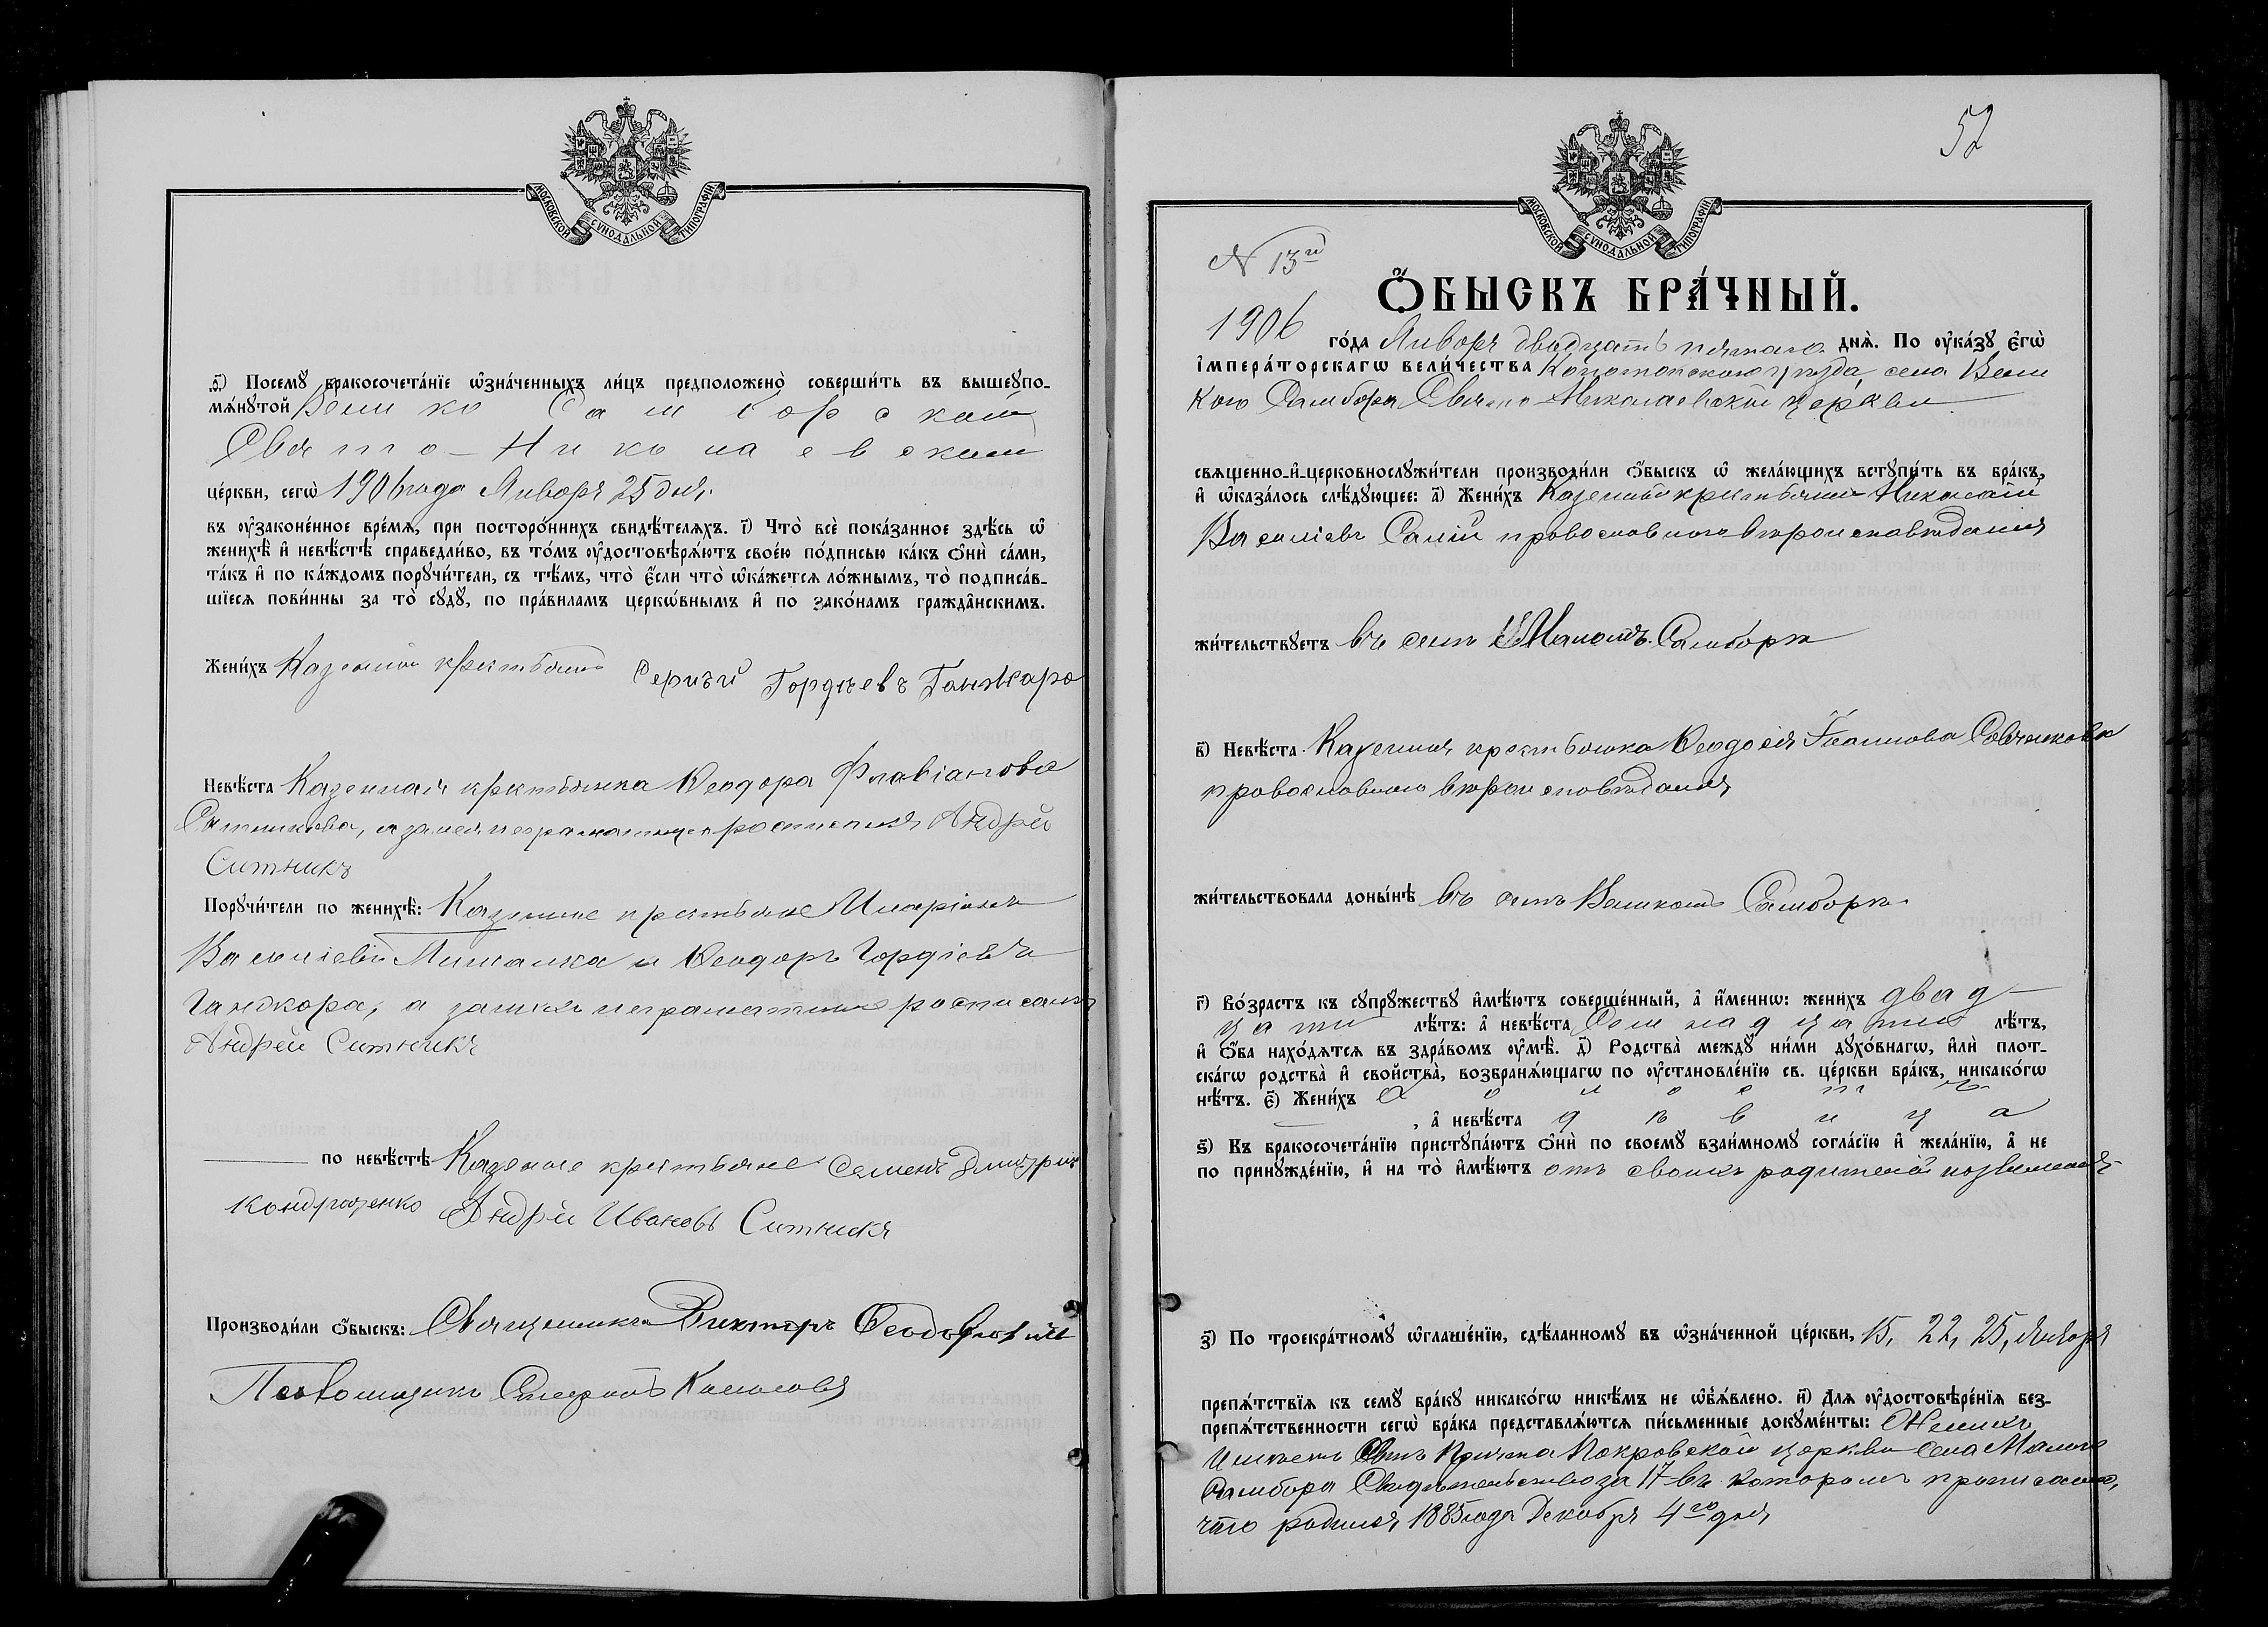 МОСКОВСКОЙ СѴНОДАЛЬНОЙ ТИПОГРАФІИ
ѳ҃) Посемꙋ̀ бракосочета́нїе ѡ҆зна́ченныхъ ли́цъ предположено̀ соверши́ть въ вышеꙋпо-
мѧ́нꙋтой Велико Самборской
Свято-Николаевской
це́ркви, сегѡ̀ 1906 года Января 25 дня.
въ ᲂу҆законе́нное вре́мѧ, при посторо́ннихъ свидѣ́телѧхъ. і҃) Что̀ всѐ пока́занное здѣ́сь ѡ҆
женихѣ̀ и҆ невѣ́стѣ справедли́во, въ то́мъ ᲂу҆достовѣрѧ́ютъ свое́ю по́дписью ка́къ ѻ҆нѝ са́ми,
та́къ и҆ по ка́ждомъ порꙋчи́тели, съ тѣ́мъ, что̀ є҆́сли что̀ ѡ҆ка́жетсѧ ло́жнымъ, то̀ подписа́в-
шїесѧ пови́нны за то̀ сꙋдꙋ̀, по пра́виламъ церкѡ́внымъ и҆ по зако́намъ гражда̂нскимъ.
Жени́хъ Казенный крестьянинъ Сергѣй Гордѣевъ Ганжара
Невѣ́ста Казенная крестьянка Ѳеодора Флавіанова
Ситникова, а за нея неграматную росписался Андрей
Ситникъ
Порꙋчи́тели по женихѣ̀: Казенные крестьяне Иларіонъ
Василіевъ и Ѳеодоръ Гордіевъ
Ганжора, а за нихъ неграматныхъ росписался
Андрей Ситникъ
по невѣ́стѣ Казенные крестьяне Семенъ Дмитріевъ
Кондратенко Андрей Ивановъ Ситникъ
Производи́ли ѻ҆́быскъ: Священникъ Викторъ Ѳеодоровскій
Псаломщикъ
52
МОСКОВСКОЙ СѴНОДАЛЬНОЙ ТИПОГРАФІИ
N 13й
Ѻ҆́БЫСКЪ БРА́ЧНЫЙ.
1906 го́да Января двадцать пятаго днѧ̀. По ᲂу҆ка́зꙋ є҆гѡ̀
і҆мпера́торскагѡ вели́чества Конотопского уѣзда, села Вели
кого Самбора Свято-Николаевской церкви
свѧщенно-и҆-церковнослꙋжи́тели производи́ли ѻ҆́быскъ ѡ҆ жела́ющихъ встꙋпи́ть въ бра́къ,
и҆ ѡ҆каза́лось слѣ́дꙋющее: а҃) Жени́хъ Казенный крестьянинъ Николай
Василіевъ Салій православного вѣроисповѣданія
жи́тельствꙋетъ въ селѣ Маломъ Самборѣ
в҃) Невѣ́ста Казенная крестьянка Ѳеодосія Іоаннова Савченкова
православного вѣроисповѣданія
жи́тельствовала доны́нѣ въ селѣ Великомъ Самборѣ
г҃) Во́зрастъ къ сꙋпрꙋ́жествꙋ и҆мѣ́ютъ соверше́нный, а҆ и҆́меннѡ: жени́хъ двад-
цати лѣ́тъ: а҆ невѣ́ста Семнадцати лѣ́тъ,
и҆ ѻ҆́ба нахо́дѧтсѧ въ здра́вомъ ᲂу҆мѣ̀. д҃) Родства̀ междꙋ̀ ни́ми дꙋхо́внагѡ, и҆лѝ плот-
ска́гѡ родства̀ и҆ свойства̀, возбранѧ́ющагѡ по ᲂу҆становле́нїю св. це́ркви бра́къ, никако́гѡ
нѣ́тъ. є҃) Жени́хъ холостъ
, а҆ невѣ́ста дѣвица
ѕ҃) Къ бракосочета́нїю пристꙋпа́ютъ ѻ҆нѝ по своемꙋ̀ взаи́мномꙋ согла́сїю и҆ жела́нїю, а҆ не
по принꙋжде́нїю, и҆ на то̀ и҆мѣ́ютъ отъ своихъ родителей позволенія
з҃) По троекра́тномꙋ ѡ҆глаше́нїю, сдѣ́ланномꙋ въ ѡ҆зна́ченной це́ркви, 15, 22, 25, Января
препѧ́тствїѧ къ семꙋ̀ бра́кꙋ никако́гѡ никѣ́мъ не ѡ҆б̾ѧ́влено. и҃) Длѧ ᲂу҆достовѣре́нїѧ без-
препѧ́тственности сегѡ̀ бра́ка представлѧ́ютсѧ пи́сьменные докꙋме́нты: Женихъ
имѣетъ отъ Причта Покровской церкви села Малого
Самбора Свидѣтельство за 17 въ которомъ прописано,
что родился 1885 года Декабря 4го дня